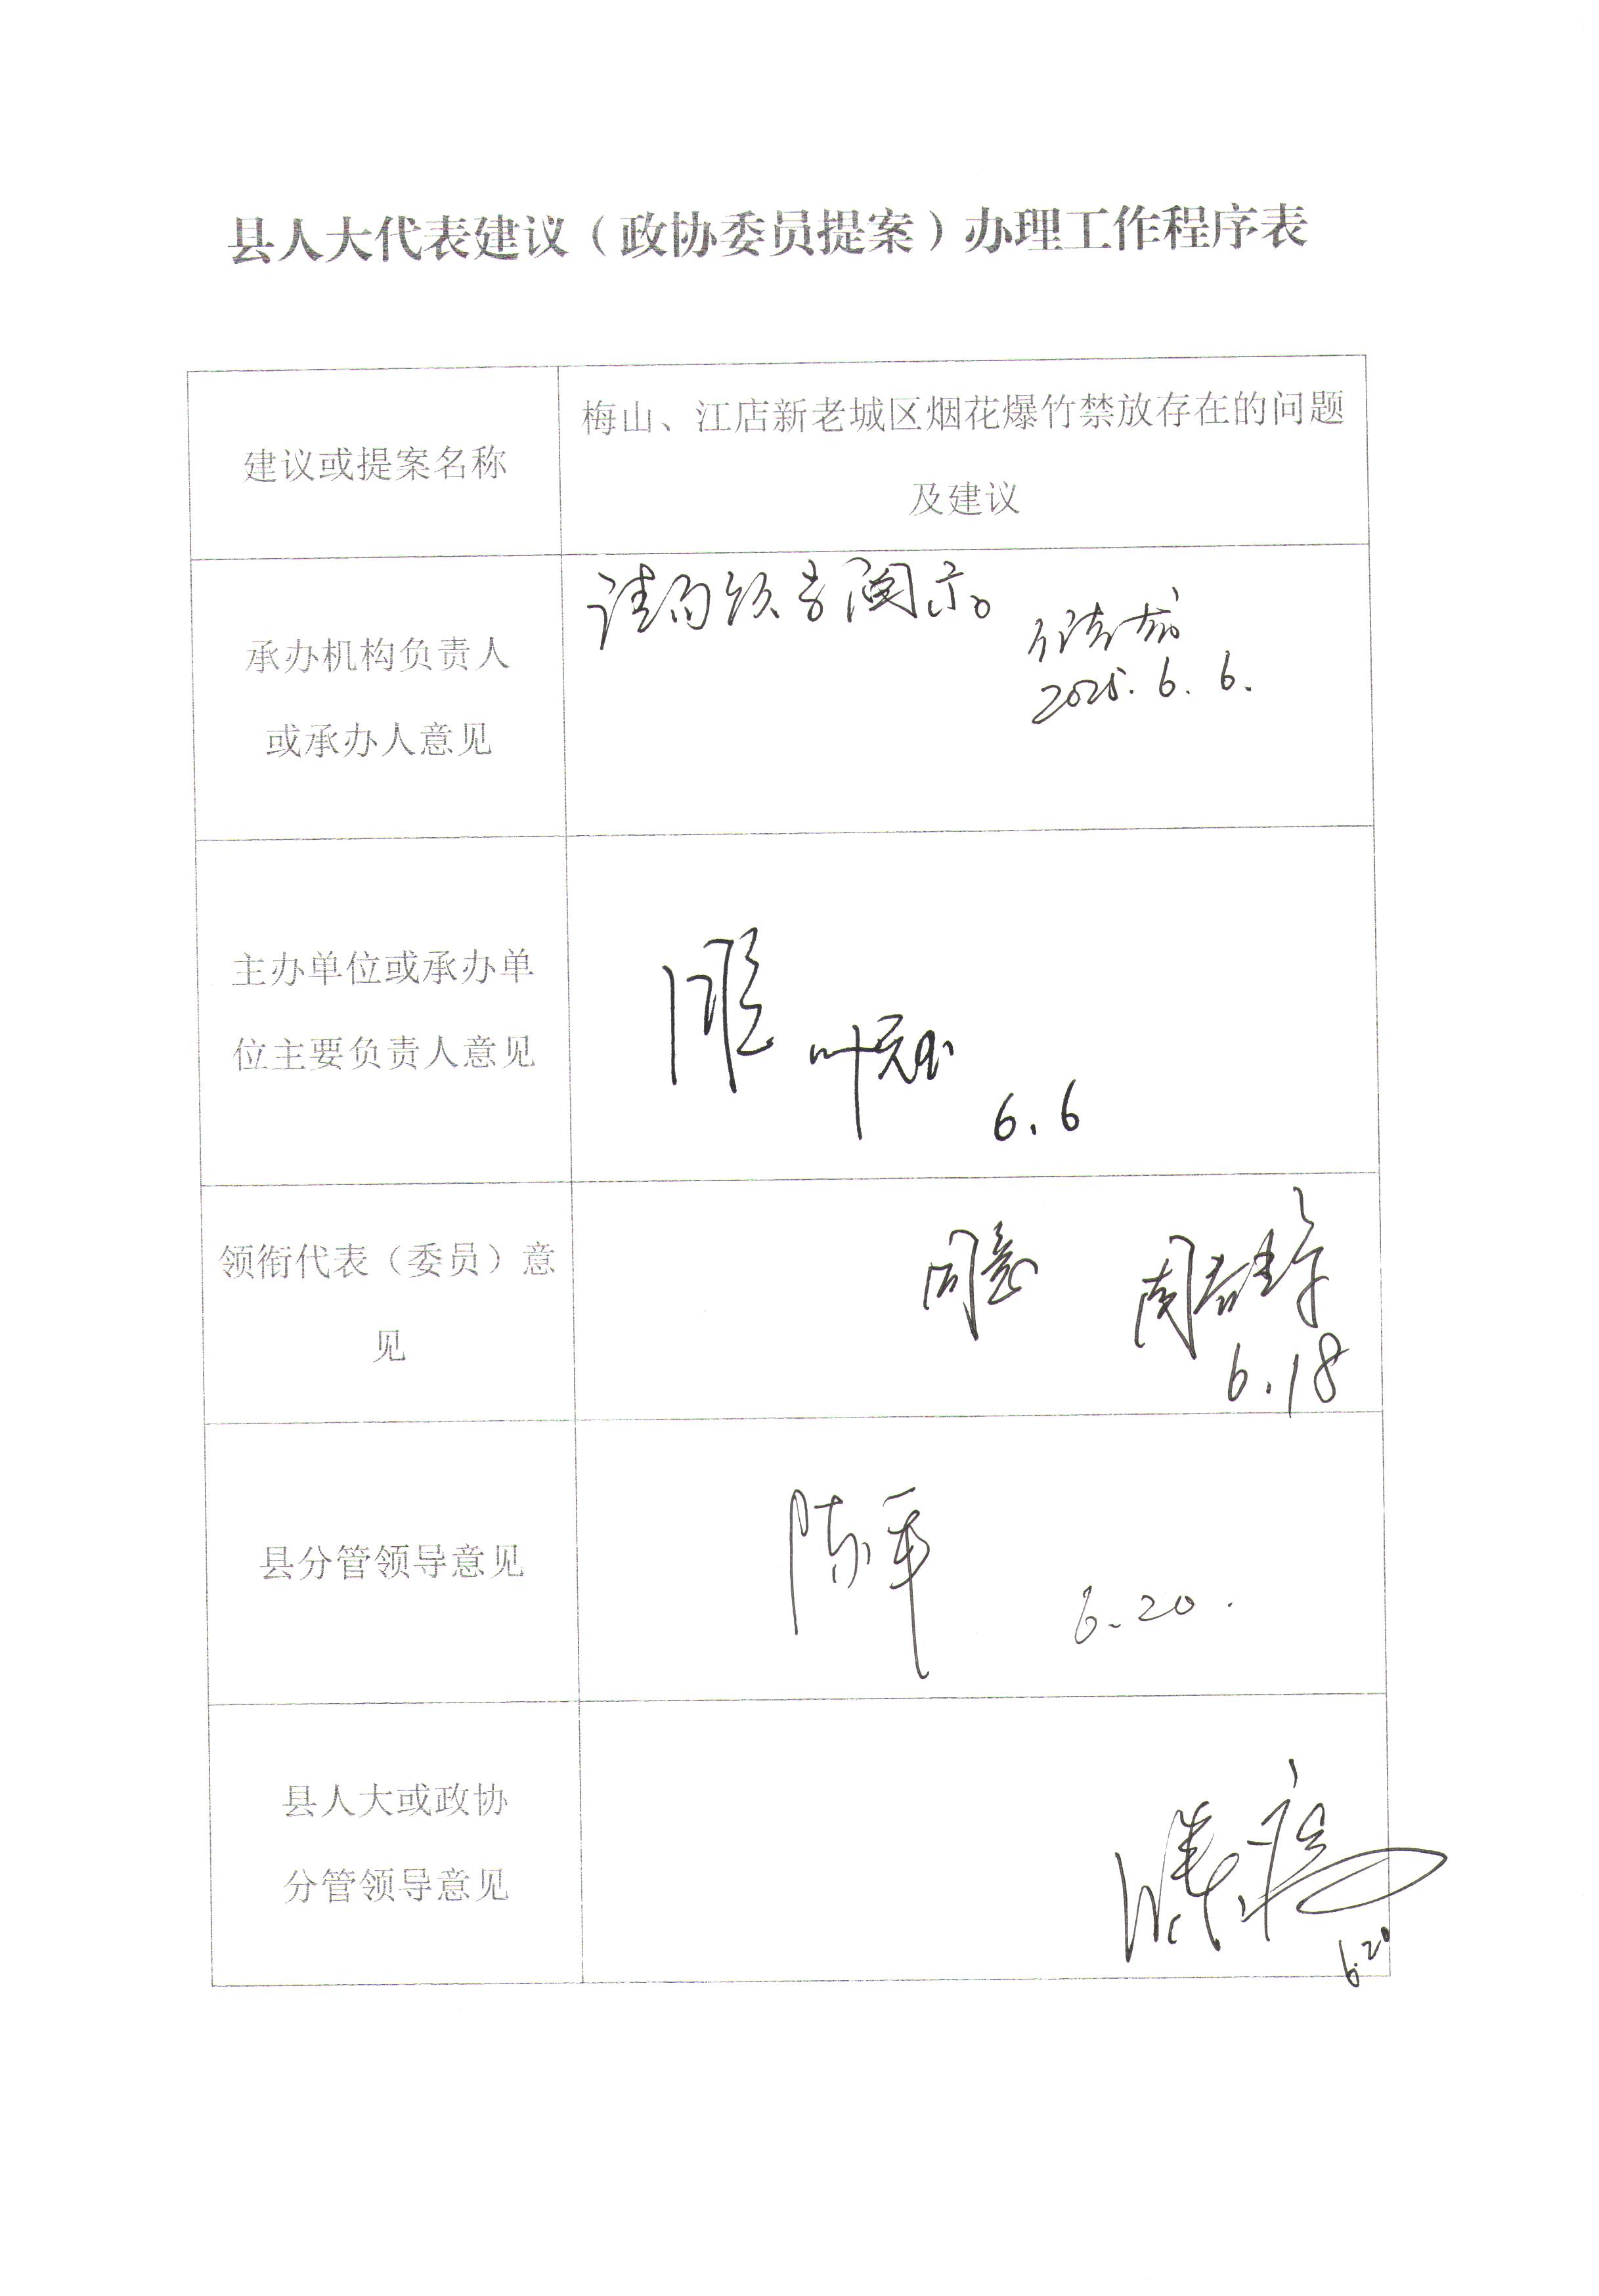 县人大代表建议（政协委员提案）办理工作程序表
建议或提案名称
梅山、江店新老城区烟花爆竹禁放存在的问题
及建议
承办机构负责人
或承办人意见
请 阅示。
2025.6.6.
主办单位或承办单
位主要负责人意见
6.6
领衔代表（委员）意
见
同意 周
6.18
县分管领导意见
陈军
6.20.
县人大或政协
分管领导意见
6.20